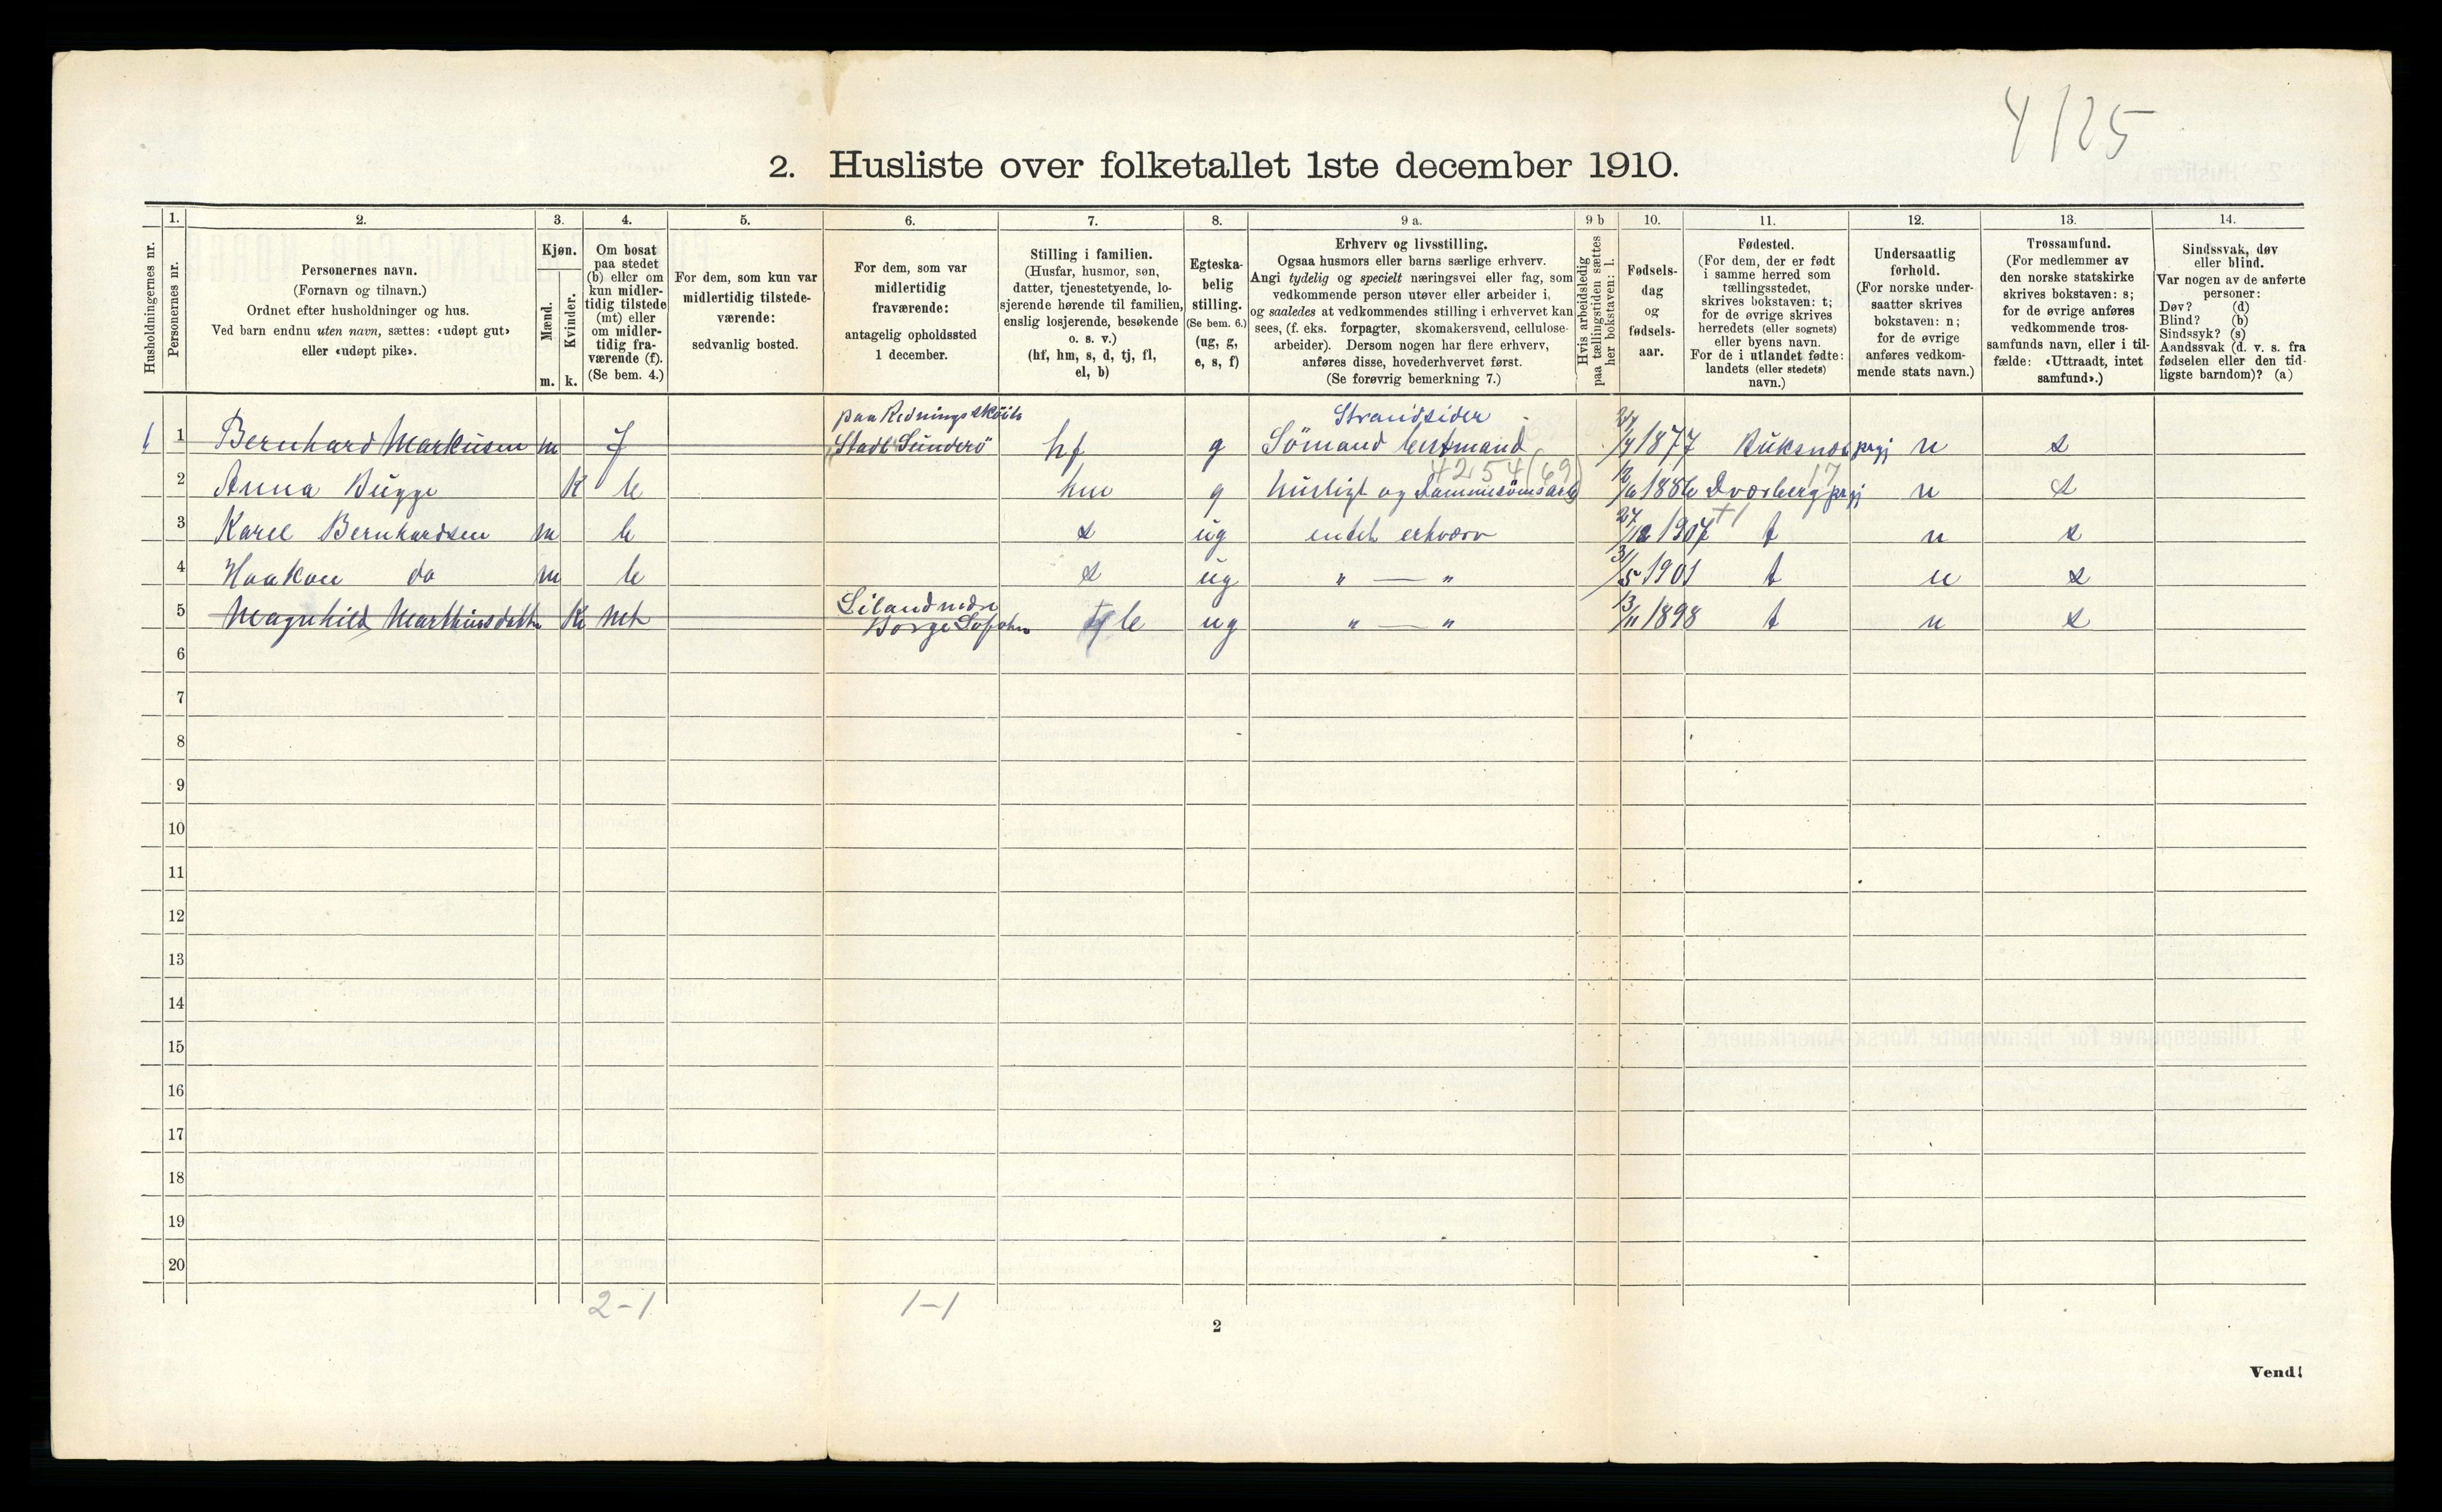 4/25
2. Husliste over folketallet 1ste december 1910.
Husholdningernes nr.
1.
Personernes nr.
2.
Personernes navn.
(Fornavn og tilnavn.)
Ordnet efter husholdninger og hus.
Ved barn endnu uten navn, sættes: «udøpt gut»
eller «udøpt pike».
3.
Kjøn.
Mænd.
Kvinder.
m. k.
4.
Om bosat
paa stedet
(b) eller om
kun midler-
tidig tilstede
(mt) eller
om midler-
tidig fra-
værende (f).
(Se bem. 4.)
5.
For dem, som kun var
midlertidig tilstede-
værende:
sedvanlig bosted.
6.
For dem, som var
midlertidig
fraværende:
antagelig opholdssted
1 december.
7.
Stilling i familien.
(Husfar, husmor, søn,
datter, tjenestetyende, lo-
sjerende hørende til familien,
enslig losjerende, besøkende
o. s. v.)
(hf, hm, s, d, tj, fl,
el, b)
8.
Egteska-
belig
stilling.
(Se bem. 6.)
(ug, g,
e, s, f)
9 a.
Erhverv og livsstilling.
Ogsaa husmors eller barns særlige erhverv.
Angi tydelig og specielt næringsvei eller fag, som
vedkommende person utøver eller arbeider i,
og saaledes at vedkommendes stilling i erhvervet kan
sees, (f. eks. forpagter, skomakersvend, cellulose-
arbeider). Dersom nogen har flere erhverv,
anføres disse, hovederhvervet først.
(Se forøvrig bemerkning 7.)
9 b
Hvis arbeidsledig
paa tællingstiden sættes
her bokstaven: l.
10.
Fødsels-
dag
og
fødsels-
aar.
11.
Fødested.
(For dem, der er født
i samme herred som
tællingsstedet,
skrives bokstaven: t;
for de øvrige skrives
herredets (eller sognets)
eller byens navn.
For de i utlandet fødte:
landets (eller stedets)
navn.)
12.
Undersaatlig
forhold.
(For norske under-
saatter skrives
bokstaven: n;
for de øvrige
anføres vedkom-
mende stats navn.)
13.
Trossamfund.
(For medlemmer av
den norske statskirke
skrives bokstaven: s;
for de øvrige anføres
vedkommende tros-
samfunds navn, eller i til-
fælde: «Uttraadt, intet
samfund».)
14.
Sindssvak, døv
eller blind.
Var nogen av de anførte
personer:
Døv? (d)
Blind? (b)
Sindssyk? (s)
Aandssvak (d. v. s. fra
fødselen eller den tid-
ligste barndom)? (a)
paa Redningsskøite Strandsider
1 1 Bernhard Markusen m f Stadt hf g Sömand 1877 n s
4254 (69) 17
2 Anna Bugge K b hm g husligt og 1886 n s
3 Karel Bernhardsen m b s ug intet erhverv 27/12 1907 t n s
4 Haakon do m b s ug " — " 31/5 1901 t n s
5 Magnhild Marthinsdatter K mt b ug " — " 13/11 1898 t n s
6
7
8
9
10
11
12
13
14
15
16
17
18
19
20
2-1 1-1
2
Vend!